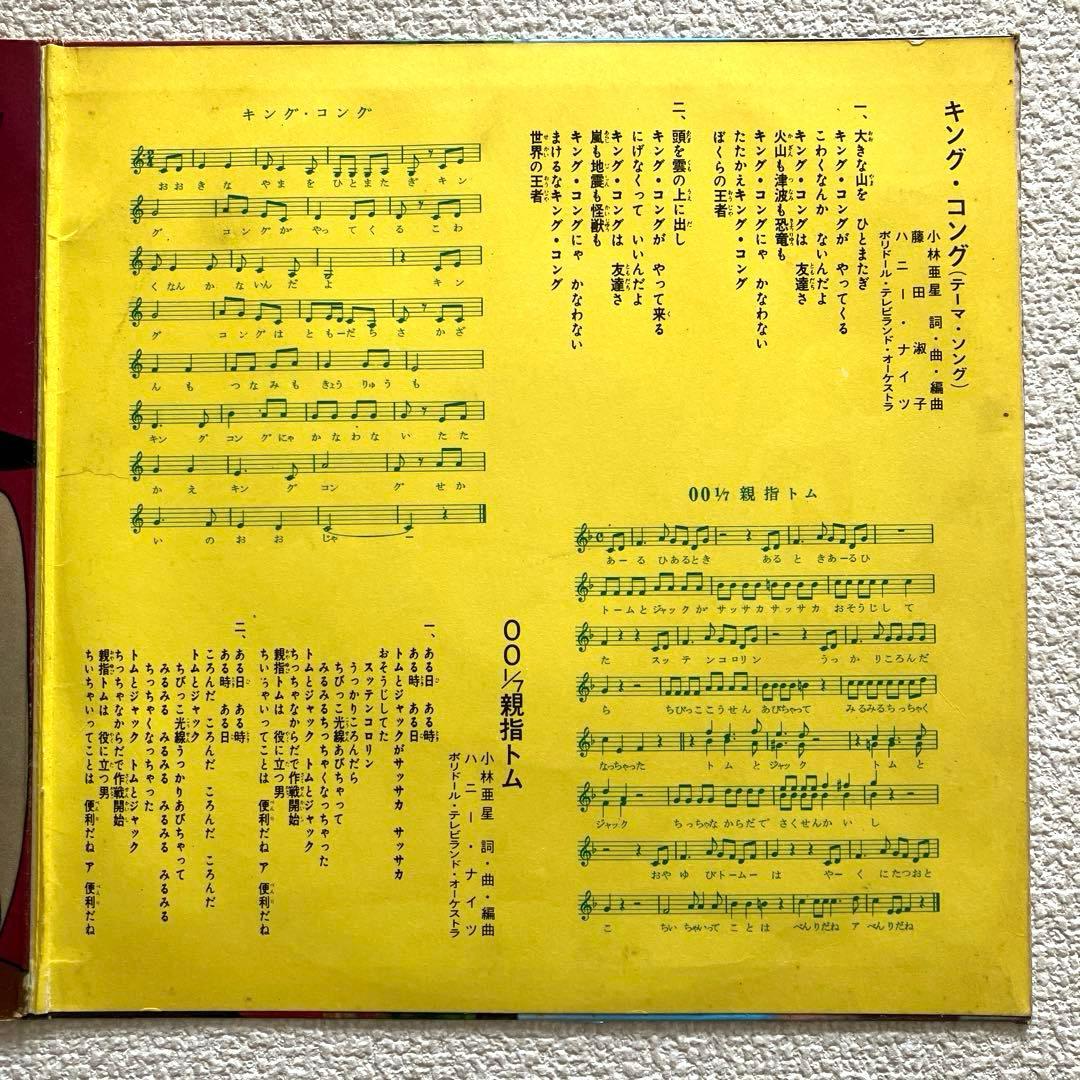 キング・コング(テーマ・ソング)
小林亜星 詞・曲・編曲
藤田淑子
ハニー・ナイツ
ポリドール・テレビランド・オーケストラ
一、大きな山を ひとまたぎ
キング・コングが やってくる
こわくなんか ないんだよ
キング・コングは 友達さ
火山も津波も恐竜も
キング・コングにゃ かなわない
たたかえキング・コング
ぼくらの王者
二、頭を雲の上に出し
キング・コングが やって来る
にげなくって いいんだよ
キング・コングは 友達さ
嵐も地震も怪獣も
キング・コングにゃ かなわない
まけるなキング・コング
世界の王者
キング・コング
おおきな やまを ひとまたぎ キン
グ コングが やってくる こわ
くなん かないんだ よ キン
グ コングは ともーだち さ かざ
んも つなみも きょうりゅうも
キング コングにゃ かなわな い たた
かえ キング コン グ せか
いのおお じゃ ー
00 1/7 親指トム
あーる ひあるとき ある と きあーるひ
トームとジャックが サッサカサッサカ おそうじして
た スッテンコロリン うっか りころんだ
ら ちびっここうせん あびちゃって みるみるちっちゃく
なっちゃった トム とジャック トム と
ジャック ちっちゃな からだで さくせんかい し
おやゆ びトームー は やーく にたつおと
こ ちい ちゃいって ことは べんりだね ア べんりだね
00 1/7 親指トム
小林亜星 詞・曲・編曲
ハニー・ナイツ
ポリドール・テレビランド・オーケストラ
一、ある日 ある時
ある時 ある日
トムとジャックがサッサカ サッサカ
おそうじしてた
スッテンコロリン
うっかりころんだら
ちびっこ光線あびちゃって
みるみるちっちゃくなっちゃった
トムとジャック トムとジャック
ちっちゃなからだで作戦開始
親指トムは 役に立つ男
ちいちゃいってことは 便利だね ア 便利だね
二、ある日 ある時
ある時 ある日
ころんだ ころんだ ころんだ ころんだ
トムとジャック
ちびっこ光線うっかりあびちゃって
みるみる みるみる みるみる みるみる
ちっちゃくなっちゃった
トムとジャック トムとジャック
ちっちゃなからだで作戦開始
親指トムは 役に立つ男
ちいちゃいってことは 便利だね ア 便利だね